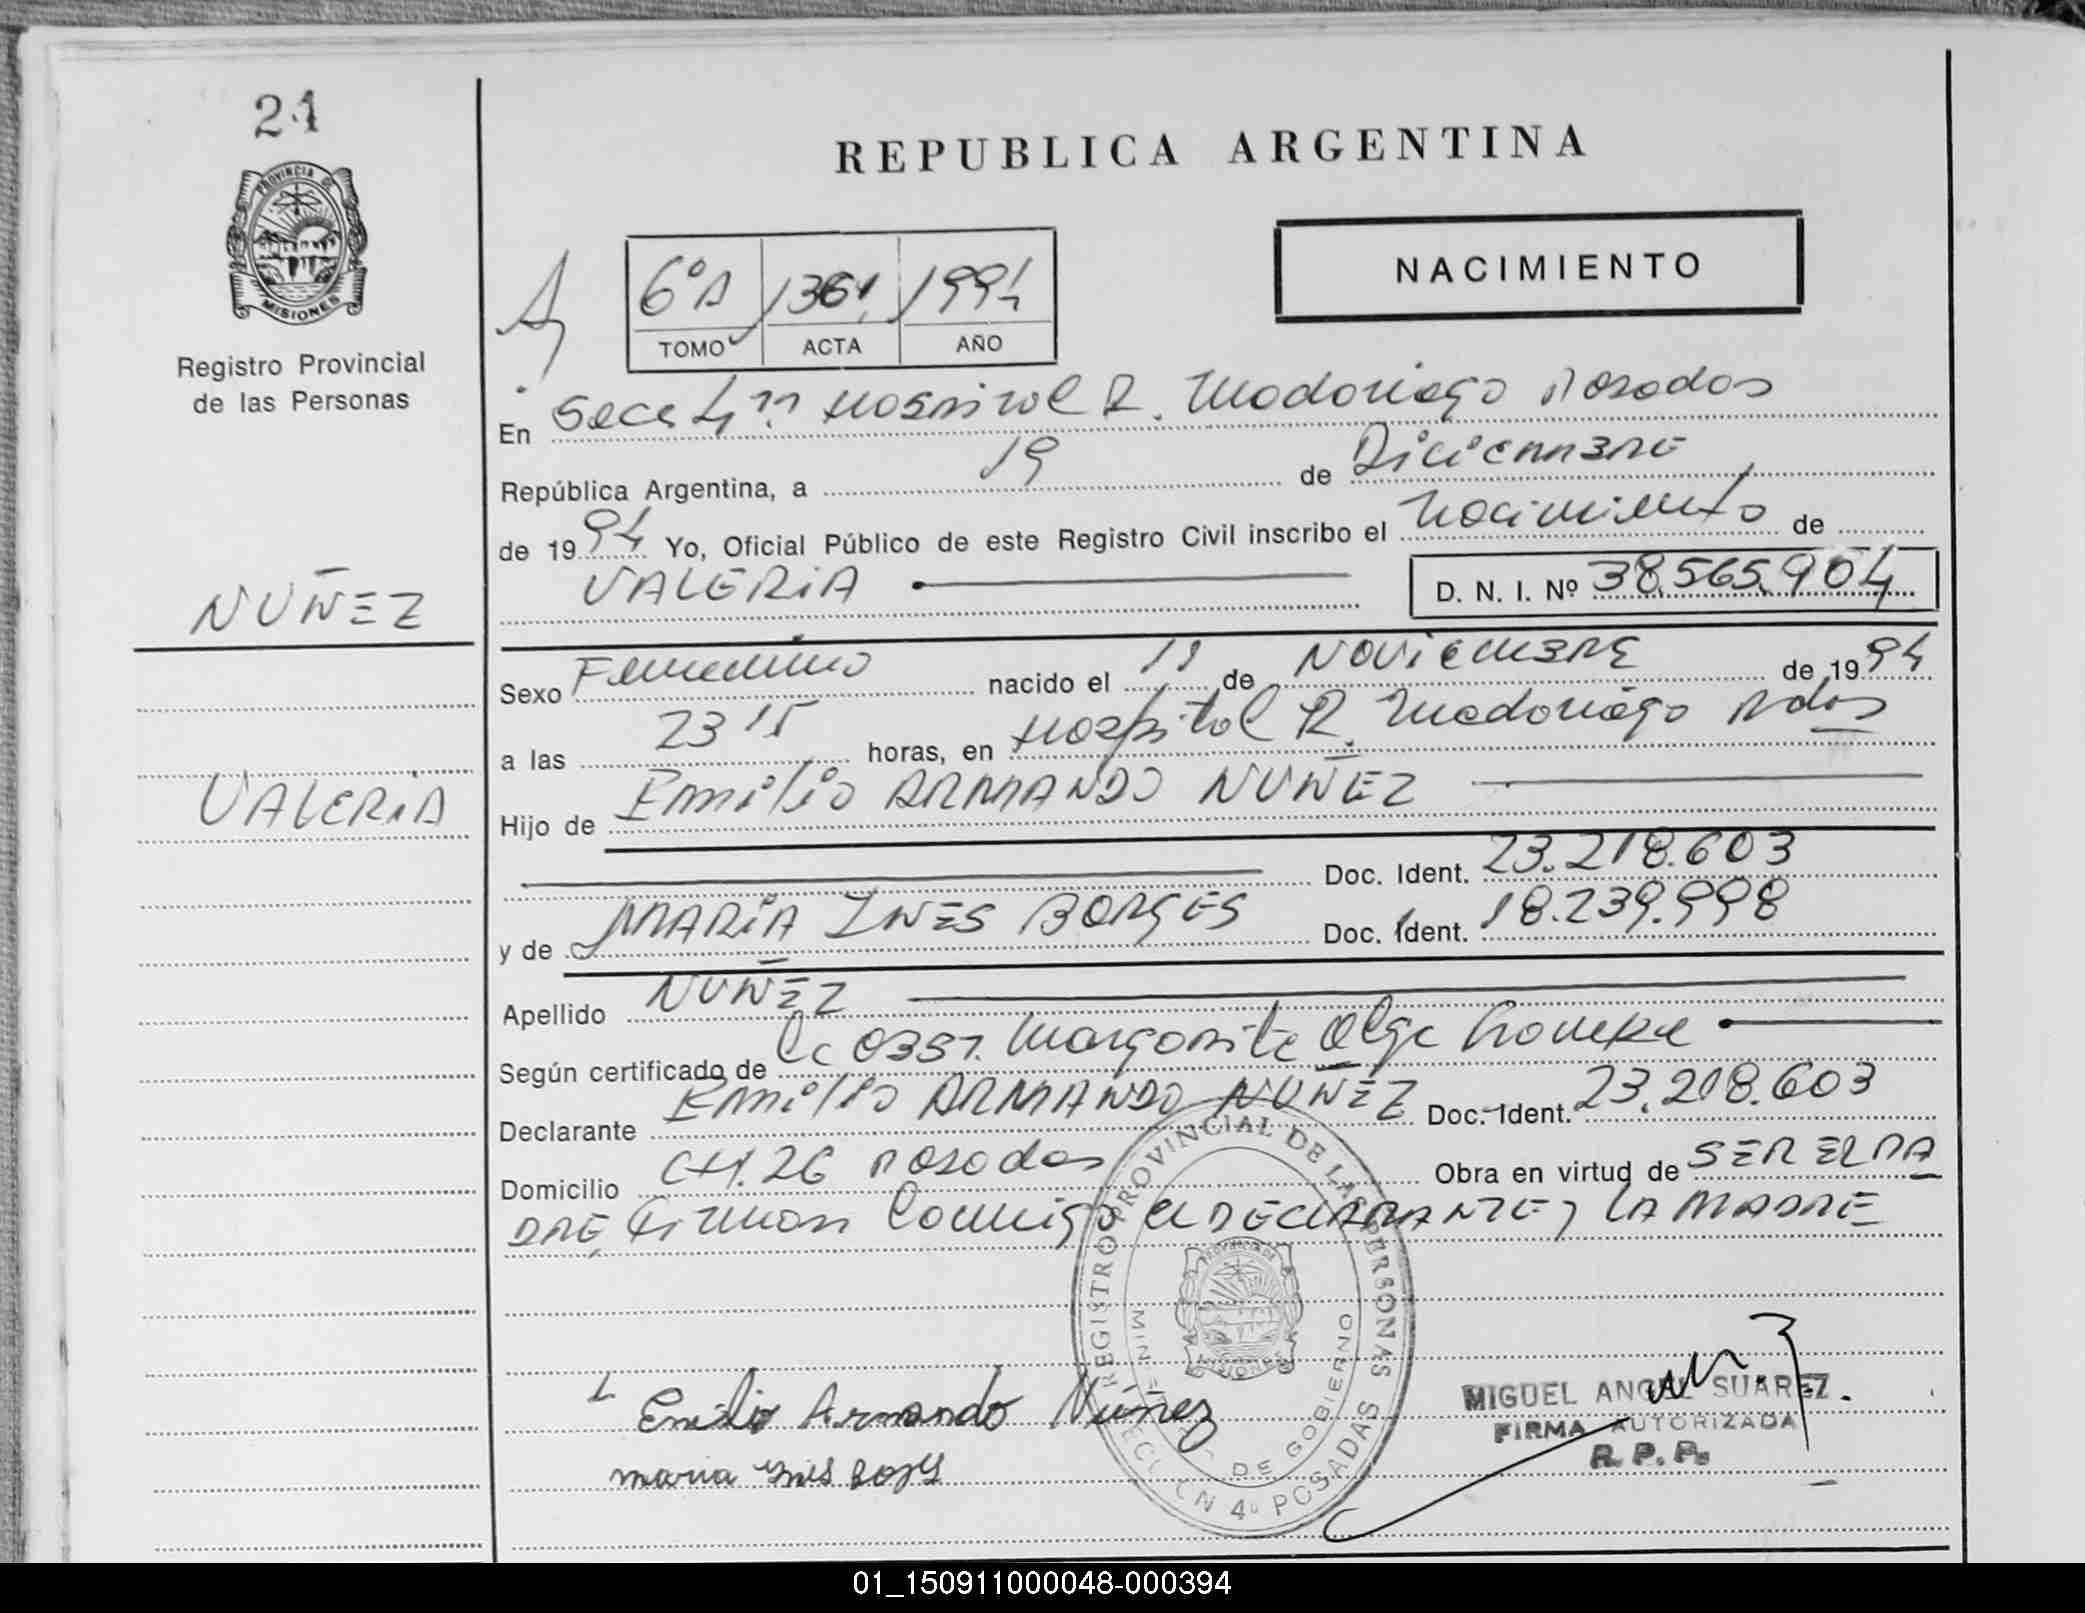 21
PROVINCIA DE
MISIONES
Registro Provincial
de las Personas
REPUBLICA ARGENTINA
NACIMIENTO
6ºA 1361 1994
TOMO ACTA AÑO
En Secc 4ª Hospital R. Madariaga Posadas
República Argentina, a 19 de Diciembre
de 1994 Yo, Oficial Público de este Registro Civil inscribo el Nacimiento de
VALERIA D. N. I. Nº 38.565.904
NUÑEZ
VALERIA
Sexo Femenino nacido el de NOVIEMBRE de 1994
a las 23 15 horas, en Hospital R. Madariaga Pdas
Hijo de Emilio ARMANDO NUÑEZ
Doc. Ident. 23.218.603
y de MARIA INES BORGES Doc. Ident. 18.239.998
Apellido NUÑEZ
Según certificado de Obst. Margarita Olga
Declarante Emilio ARMANDO NUÑEZ Doc. Ident. 23.218.603
Domicilio CH. 26 Posadas Obra en virtud de SER EL PA
DRE, Firman Conmigo el DECLARANTE y LA MADRE
REGISTRO PROVINCIAL DE LAS PERSONAS
DE GOBIERNO
4º POSADAS
PROVINCIA DE
MISIONES
Emilio Armando Núñez
maria
MIGUEL ANGEL SUAREZ.
FIRMA AUTORIZADA
R. P. P.
01_150911000048-000394